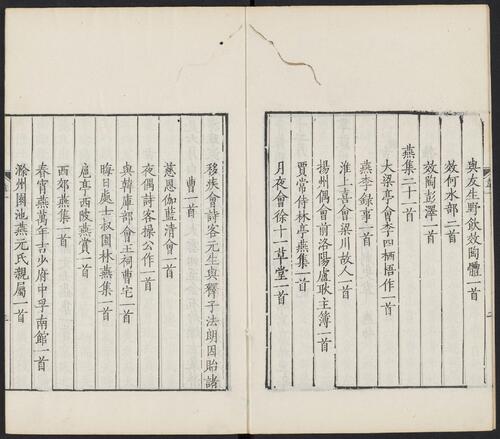 與友生野飲效陶體一首
效何水部二首
效陶彭澤一首
燕集二十一首
大梁亭會李四栖梧作一首
燕李錄事一首
淮上喜會梁川故人一首
揚州偶會前洛陽盧耿主簿一首
賈常侍林亭燕集一首
月夜會徐十一草堂一首
移疾會詩客元生與釋子法朗因貽諸
曹一首
慈恩伽藍清會一首
夜偶詩客操公作一首
與韓庫部會王祠曹宅一首
晦日處士叔園林燕集一首
扈亭西陂燕賞一首
西郊燕集一首
春宵燕萬年吉少府中孚南館一首
滁州園池燕元氏親屬一首